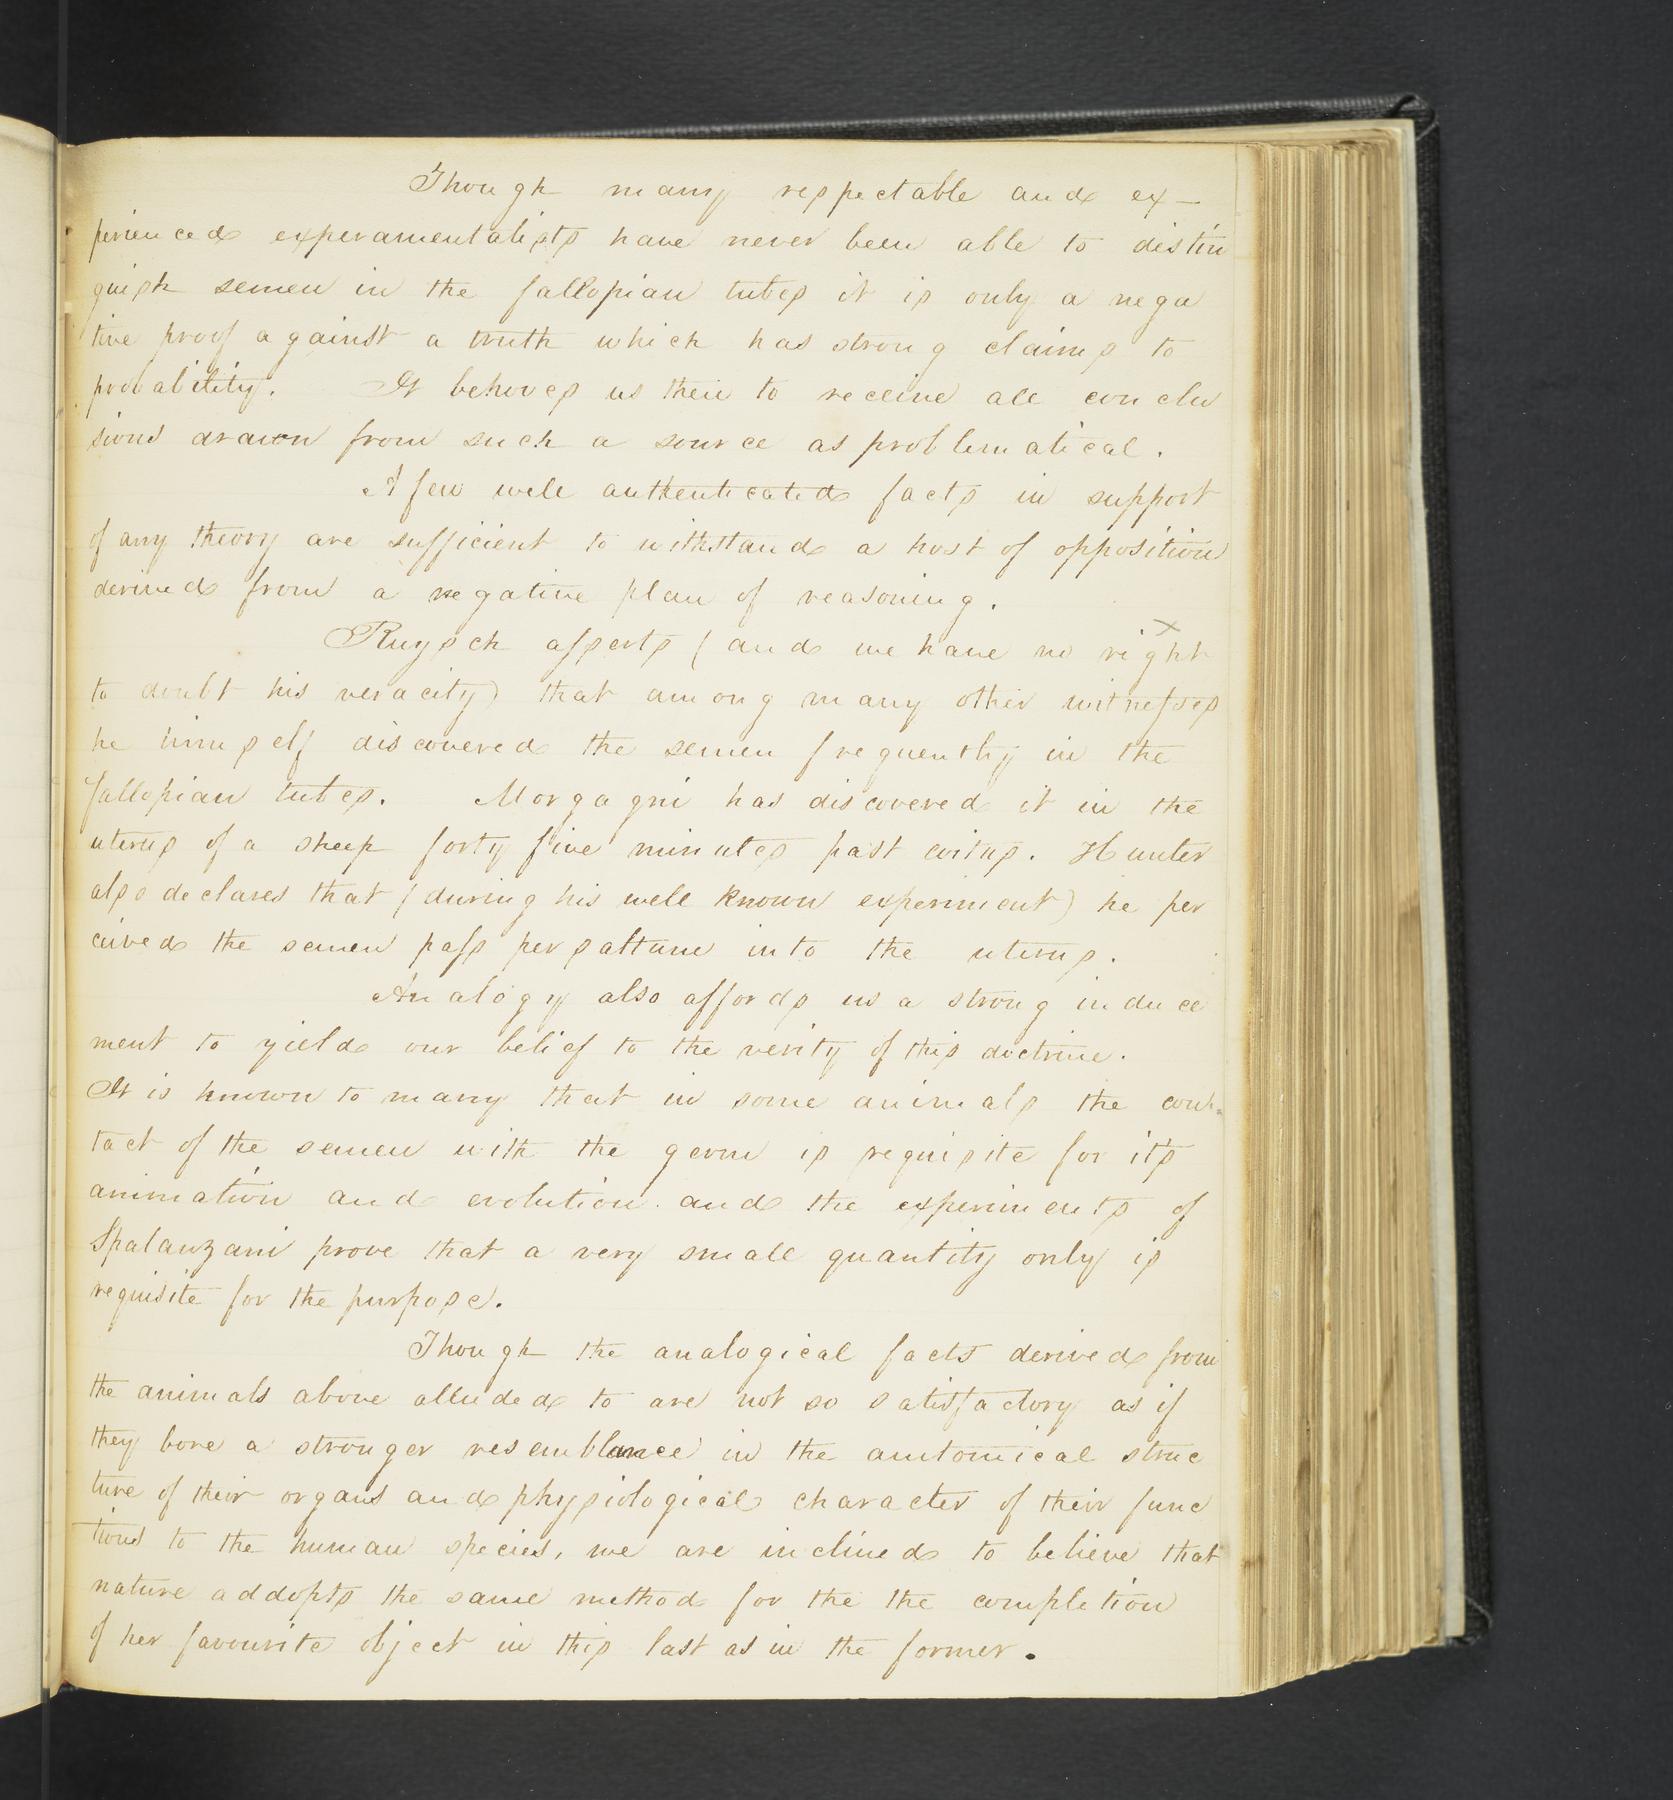 Though many respectable and ex-
perienced experamentalists have never been able to distin
guish semen in the fallopian tubes it is only a nega
tive proof against a truth which has strong claims to
probability. It behoves us then to receive all conclu
sions drawn from such a source as problematical.
A few well authenticated facts in support
of any theory are sufficient to withstand a host of opposition
derived from a negative plan of reasoning.
Ruysch asserts (and we have no right
to doubt his veracity) that among many other witnesses
he himself discovered the semen frequently in the
fallopian tubes. Morgagni has discovered it in the
uterus of a sheep forty five minutes past coitus. Hunter
also declares that (during his well known experiment) he per
ceived the semen pass per saltum into the uterus.
Analogy also affords us a strong induce
ment to yield our belief to the verity of this doctrine.
It is known to many that in some animals the con-
tact of the semen with the germ is requisite for its
animation and evolution and the experiments of
Spalanzani prove that a very small quantity only is
requisite for the purpose.
Though the analogical facts derived from
the animals above alluded to are not so satisfactory as if
they bore a stronger resemblance in the anatomical struc
ture of their organs and physiological character of their func
tions to the human species, we are inclined to believe that
nature addopts the same method for the the completion
of her favourite object in this last as in the former.